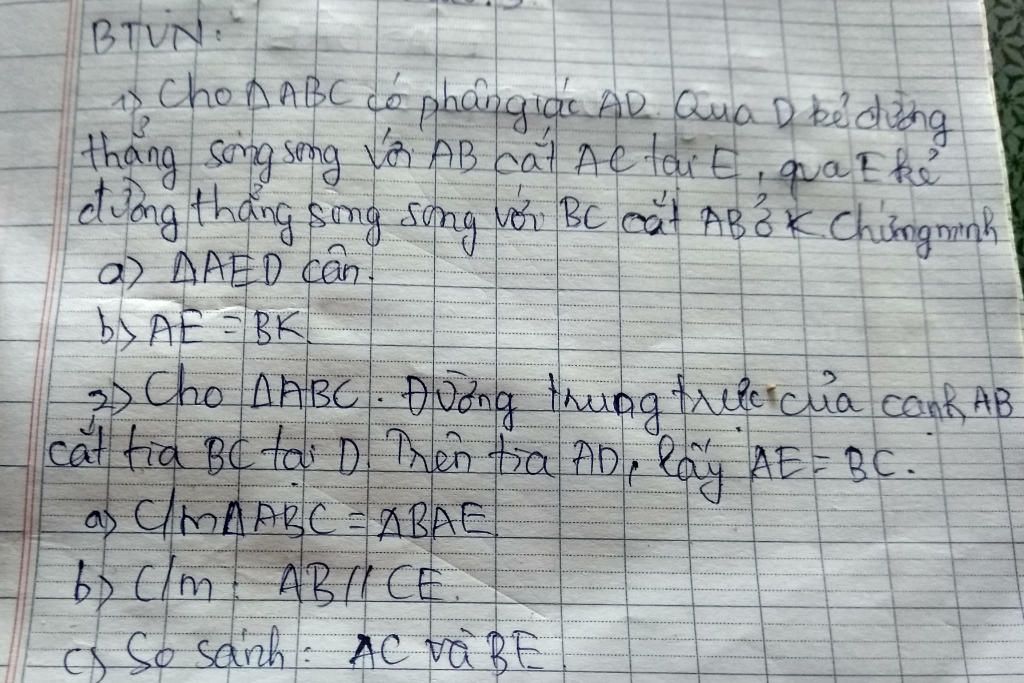 BTVN:
1) Cho ΔABC có phân giác AD. Qua D kẻ đường
thẳng song song với AB cắt AC tại E, qua E kẻ
đường thẳng song song với BC cắt AB ở K. Chứng minh
a) ΔAED cân.
b) AE = BK
2) Cho ΔABC. Đường trung trực của cạnh AB
cắt tia BC tại D. Trên tia AD, lấy AE = BC.
a) C/m ΔABC = ΔBAE
b) C/m: AB // CE.
c) So sánh: AC và BE.